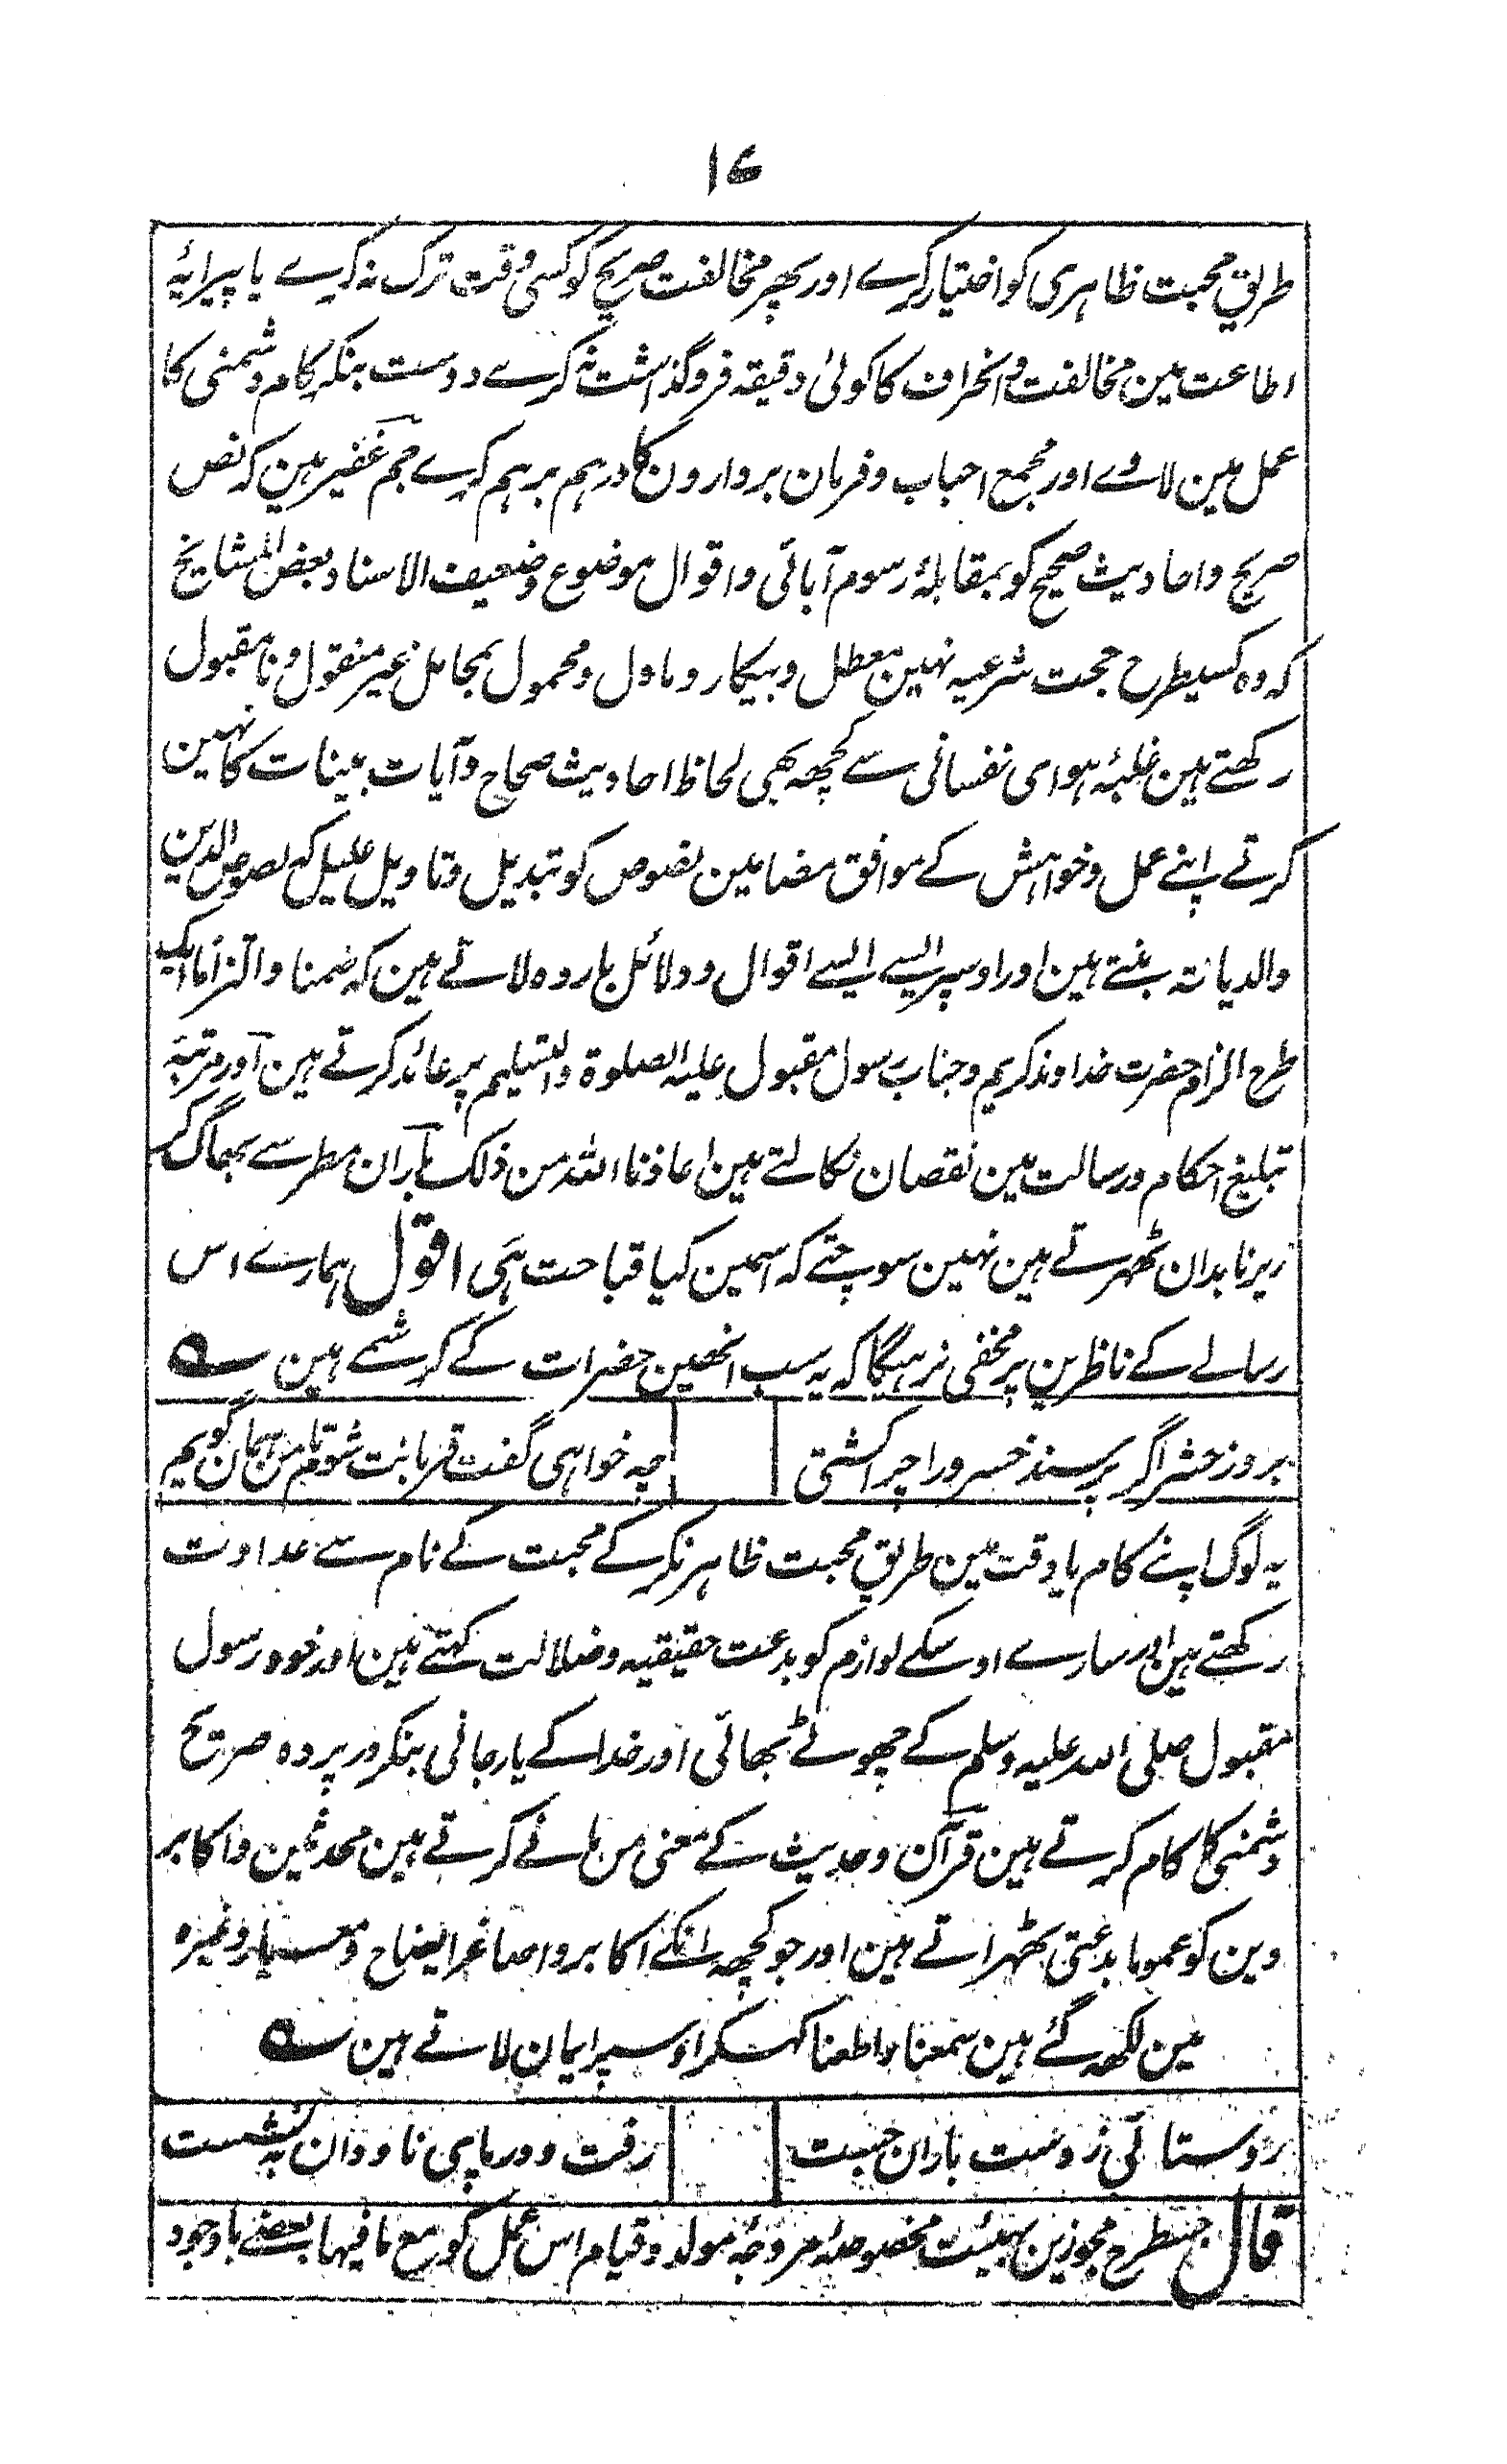 ۱۷
طریق محبت ظاہری کو اختیار کرے اور پھر مخالفت صریح کو کسی وقت ترک نہ کرے یا پیرایۂ
اطاعت مین مخالفت و انحراف کا کوئی دقیقہ فروگذاشت نہ کرے دوست بنکر کام دشمنی کا
عمل مین لاوے اور مجمع احباب و فرمان بردارون کا درہم برہم کرے جم غفیر ہین کہ نص
صریح و احادیث صحیح کو بمقابلۂ رسوم آبائی و اقوال موضوع و ضعیف الاسناد بعض المشایخ
کہ وہ کسیطرح حجت شرعیہ نہین معطل و بیکار و ماول و محمول بمحامل غیر منقول و نامقبول
رکھتے ہین غلبۂ ہوای نفسانی سے کچھہ بھی لحاظ احادیث صحاح و آیات بینات کا نہین
کرتے اپنے عمل و خواہش کے موافق مضامین نصوص کو تبدیل و تاویل علیل کر لصوص الدین
والدیانۃ بنتے ہین اور اوسپر ایسے ایسے اقوال و دلائل باردہ لاتے ہین کہ ضمنا و التزاما ایک
طرح الزام حضرت خداوند کریم و جناب رسول مقبول علیہ الصلوۃ والتسلیم پر عائد کرتے ہین اور مرتبۂ
تبلیغ احکام و رسالت مین نقصان نکالتے ہین اعاذنا اللہ من ذلک باران مطر سے بھاگ کر
زیر نابدان ٹھہرتے ہین نہین سوچتے کہ اسمین کیا قباحت ہی اقول ہمارے اس
رسالے کے ناظرین پر مخفی نرہیگا کہ یہ سب انھین حضرات کے کرشمے ہین ؎
بروز حشر اگر پرسند خسرو را چرا کشتی
چہ خواہی گفت قربانت شوم تا من ہمان گویم
یہ لوگ اپنے کام یا وقت مین طریق محبت ظاہر نکرکے محبت کے نام سے عداوت
رکھتے ہین اور سارے اوسکے لوازم کو بدعت حقیقیہ و ضلالت کہتے ہین اور خود رسول
مقبول صلی اللہ علیہ وسلم کے چھوٹے بھائی اور خدا کے یار جانی بنکر در پردہ صریح
دشمنی کا کام کرتے ہین قرآن و حدیث کے معنی من مانے کرتے ہین محدثین و اکابر
دین کو عموما بدعتی ٹھہراتے ہین اور جو کچھہ انکے اکابر و اصاغر ایضاح و معیار وغیرہ
مین لکھہ گئے ہین سمعنا و اطعنا کہکر اوسپر ایمان لاتے ہین ؎
روستائی ز دست باران جست
رفت و در پای ناودان بنشست
قال جسطرح مجوزین بہیئت مخصوصۂ مروجۂ مولد و قیام اس عمل کو مع ما فیہا بعضے باوجود